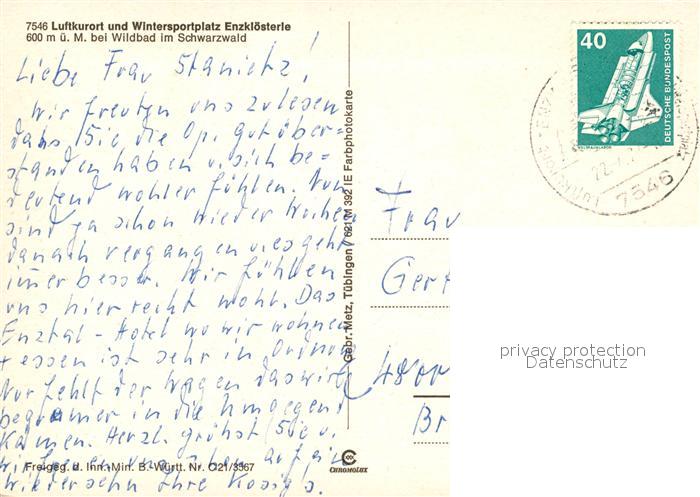 7546 Luftkurort und Wintersportplatz Enzklösterle
600 m ü. M. bei Wildbad im Schwarzwald
Liebe Frau Stanietz!
Wir freuten uns zu lesen
dass Sie die Op. gut über-
standen haben u. sich be-
deutend wohler fühlen. Nun
sind ja schon wieder Wochen
danach vergangen u. es geht
immer besser. Wir fühlen
uns hier recht wohl. Das
Enztal-Hotel wo wir wohnen
+ essen ist sehr in Ordnung
Nur fehlt der Wagen das wir
bequemer in die Umgegend
kämen. Herzl. grüsst Sie u.
wir freuen uns auf ein
Wiedersehn Ihre
Freigeg. d. Inn.-Min. B.-Württ. Nr. C21/3567
Gebr. Metz, Tübingen / 621 M 392 IE Farbphotokarte
CHROMOLUX
40
DEUTSCHE BUNDESPOST
WELTRAUMLABOR
7546
Frau
Ger
4800
Br
privacy protection
Datenschutz